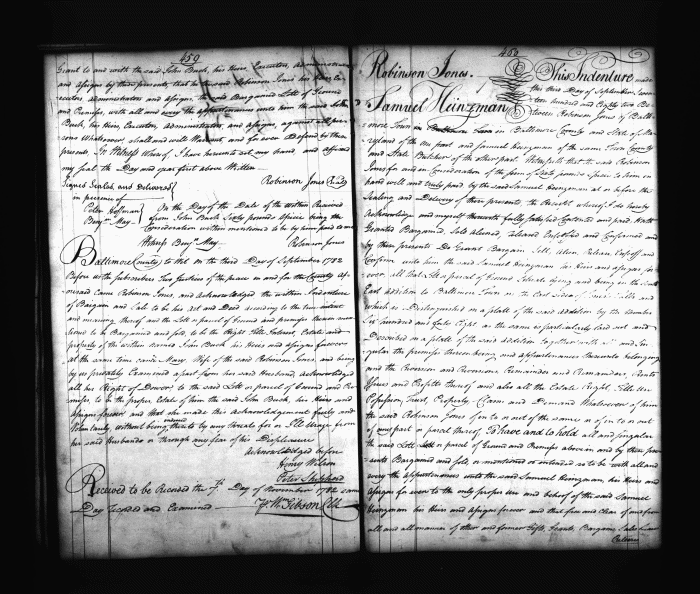 459
Grant to and with the said John Buch, his heirs, Executors, Administrators
and assigns by these presents, that he the said Robinson Jones his heirs Ex-
ecutors administrators and assigns, the said Bargained Lotts of Ground
and Premises, with all and every the appurtenances unto him the said John
Buch, his Heirs, Executors, Administrators, and assigns, against all per-
sons Whatsoever shall and will Warrant, and for ever Defend by these
presents, In Witness Whereof I have hereunto set my hand and affixed
my seal the Day and year first above Written
Signed Sealed and Delivered
in presence of
Robinson Jones (Seal)
Peter Hoffman
Benjn May
On the Day of the Date of the within Received
from John Buch Sixty pounds Specie being the
Consideration within mentioned to be by him paid to me
Witness Benjn May
Robinson Jones
Baltimore County to wit on the third Day of September 1782
Before us the subscribers Two Justices of the peace in and for the County af-
oresaid came Robinson Jones, and acknowledged the within Indenture
of Bargain and Sale to be his act and Deed according to the true intent
and meaning thereof and the Lott or parcel of Ground and premises therein men-
tioned to be Bargained and sold, to be the Right Title Interest, Estate and
property of the within named John Buch his Heirs and assigns forever
at the same time came Mary Wife of the said Robinson Jones, and being
by us privately Examined apart from her said Husband, Acknowledged
all her Right of Dower to the said Lott or parcel of Ground and Pre-
mises to be the proper Estate of him the said John Buch, her Heirs and
Assigns forever and that she made this acknowledgement freely and
Voluntarily, without being thereto by any threats for or Ill Usage from
her said Husband or through any fear of his Displeasure
Acknowledged before
Henry Wilson
Peter Shepherd
Received to be Recorded the 7th Day of November 1782 same
Day recorded and Examined
Wm Gibson Clk
460
Robinson Jones.
Samuel Heinzman
This Indenture made
this third Day of September Seven
teen hundred and Eighty two Be
tween Robinson Jones of Balti
more Town in Baltimore County and State of Ma
ryland of the one part and Samuel Heinzman of the same Town County
and State Butcher of the other part. Witnesseth that the said Robinson
Jones for and in Consideration of the sum of pounds Specie to him in
hand well and truly paid by the said Samuel Heinzman at or before the
Sealing and Delivery of these presents, the Receipt whereof I do hereby
Acknowledge and myself therewith fully satisfied Contented and paid Hath
Granted Bargained, Sold aliened, released Enfeoffed and Confirmed and
by these presents Do Grant Bargain Sell, alien, Release, Enfeoff and
Confirm unto him the said Samuel Heinzman his Heirs and assigns for
ever all that Lott or parcel of Ground Situate lying and being in the
East addition to Baltimore Town on the East side of Falls and
which is Distinguished in a platt of the said addition by the number
Six hundred and Eight as the same is particularly laid out and
Described in a platt of the said addition together with all and Sin
gular the premises thereon being and appurtenances thereunto belonging
and the Reversion and Reversions Remainder and Remainders, Rents
Issues and Profitts thereof and also all the Estate Right, Title Use
Possession, Trust, Property, Claim and Demand Whatsoever of him
the said Robinson Jones of in to or out of the same or of in to or out
of any part or parcel thereof, To have and to hold all and singular
the said Lott or parcel of Ground and Premises above in and by these pre-
sents Bargained and Sold, or mentioned or intended so to be with all and
every the appurtenances unto the said Samuel Heinzman, his Heirs and
assigns for ever to the only proper use and behoof of the said Samuel
Heinzman his Heirs and assigns forever and that free and Clear of and from
all and all manner of other and former Gifts, Grants, Bargains, Sales Leases